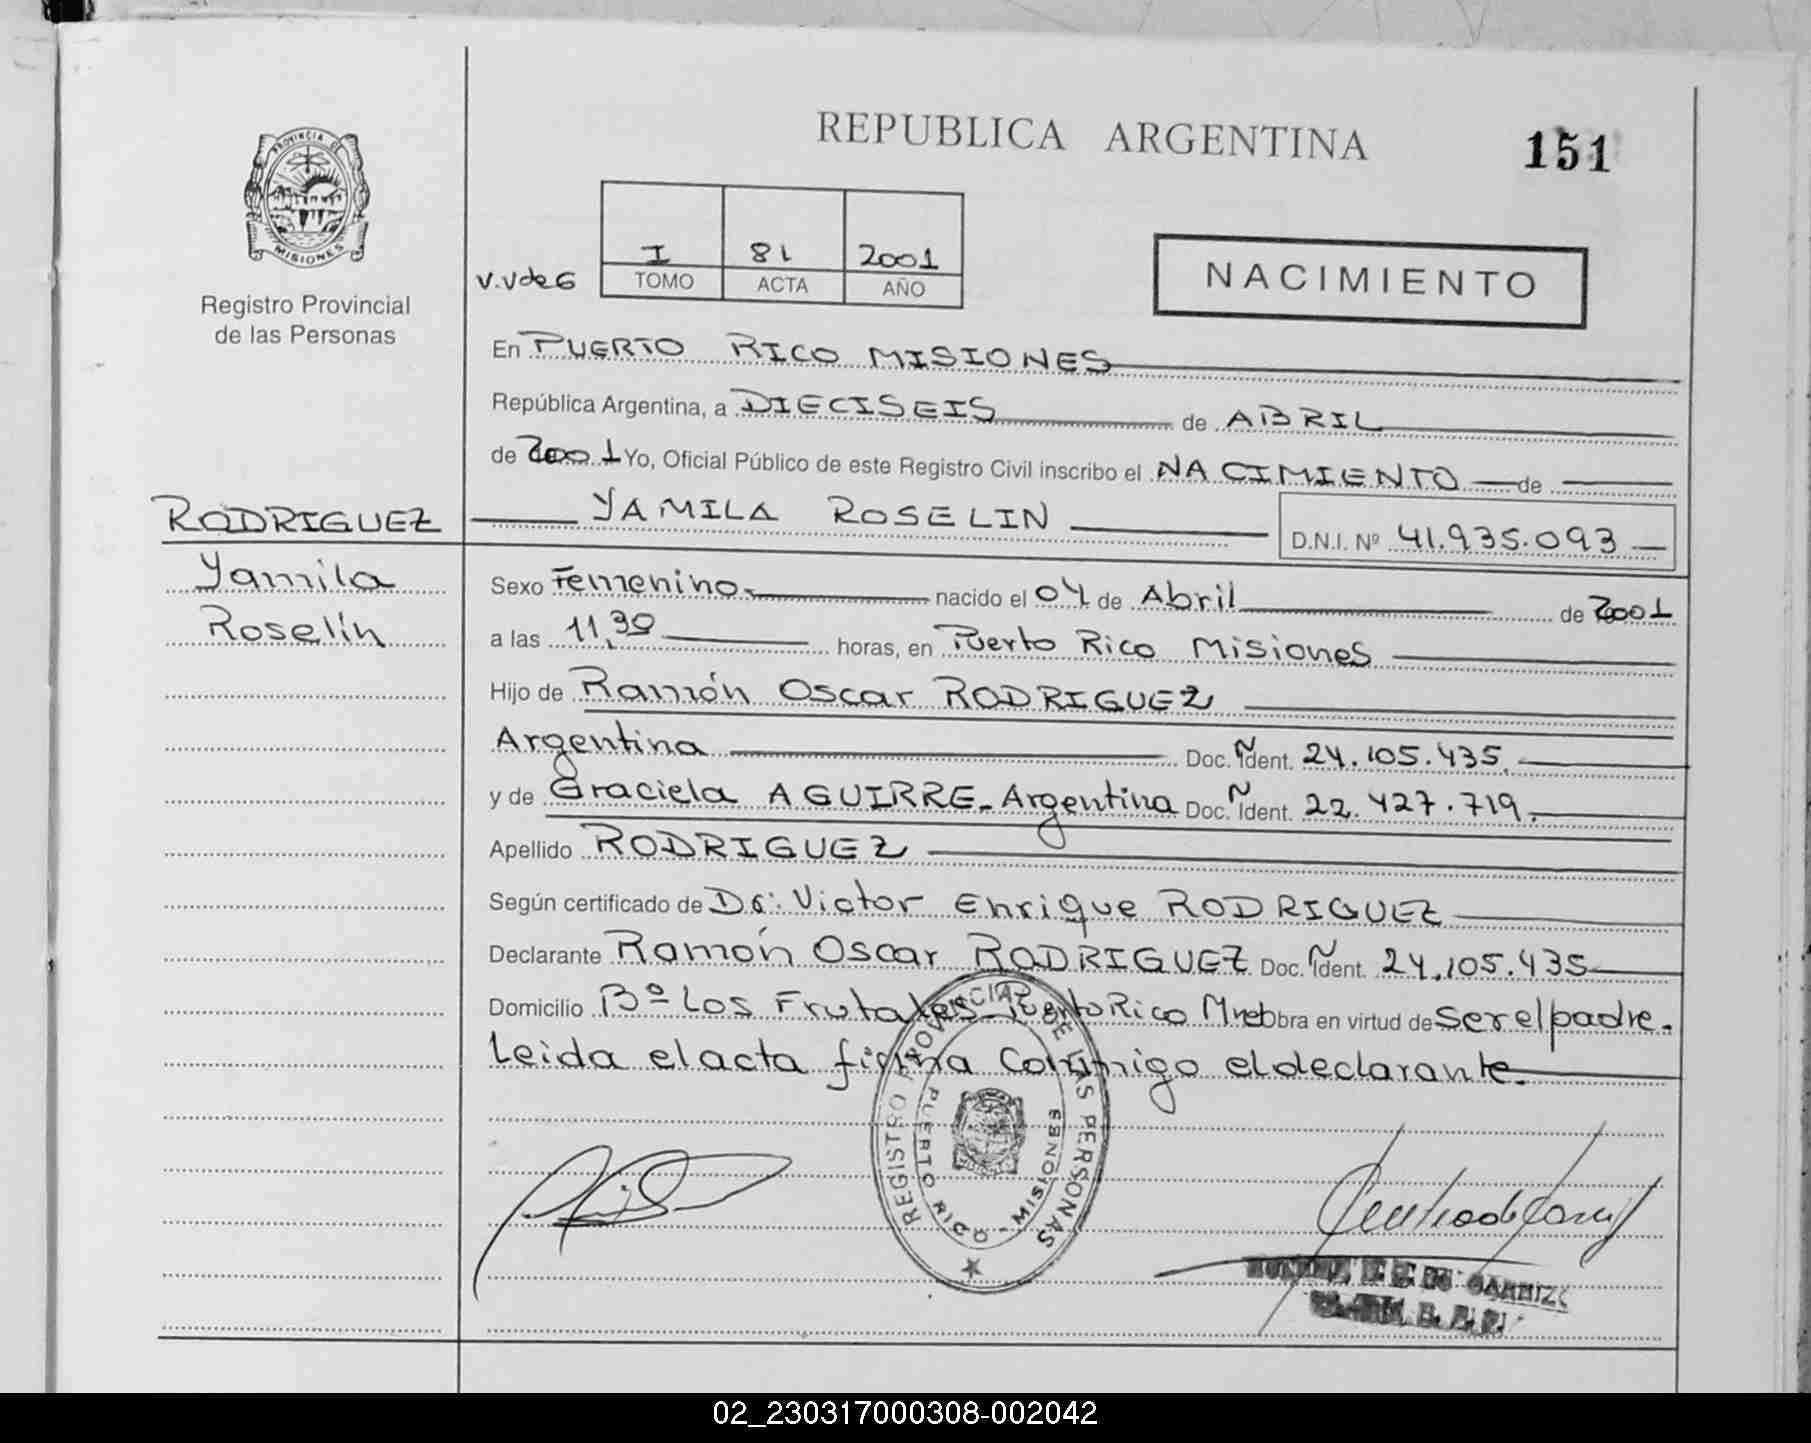 REPUBLICA ARGENTINA
151
PROVINCIA DE
MISIONES
Registro Provincial
de las Personas
V.V de G
I 81 2001
TOMO ACTA AÑO
NACIMIENTO
En PUERTO RICO MISIONES
República Argentina, a DIECISEIS de ABRIL
de 2001 Yo, Oficial Público de este Registro Civil inscribo el NACIMIENTO de
RODRIGUEZ
YAMILA ROSELIN
D.N.I. Nº 41.935.093
Yamila
Roselín
Sexo Femenino nacido el 04 de Abril de 2001
a las 11,30 horas, en Puerto Rico Misiones
Hijo de Ramón Oscar RODRIGUEZ
Argentina Doc. Ñ Ident. 24.105.435.
y de Graciela AGUIRRE - Argentina Doc. Ñ Ident. 22.427.719.
Apellido RODRIGUEZ
Según certificado de Dr: Victor Enrique RODRIGUEZ
Declarante Ramón Oscar RODRIGUEZ Doc. Ñ Ident. 24.105.435
Domicilio Bº Los Frutales - Puerto Rico Mnes Obra en virtud de ser el padre.
Leida el acta firma Conmigo el declarante.
REGISTRO PROVINCIAL DE LAS PERSONAS
PUERTO RICO - MISIONES
02_230317000308-002042